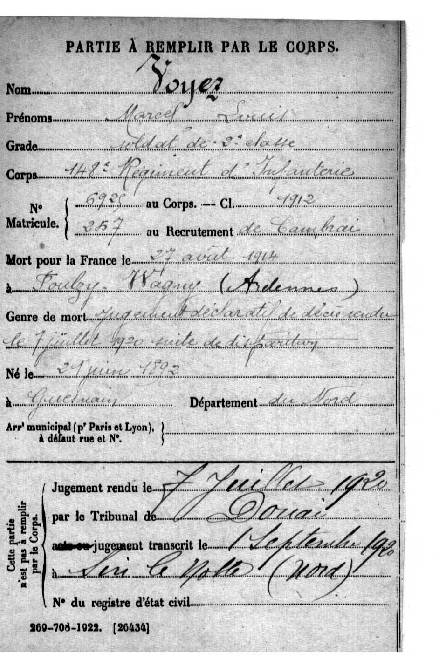 PARTIE À REMPLIR PAR LE CORPS.
Nom Voyez
Prénoms Marcel Louis
Grade soldat de 2e classe
Corps 148e Régiment d'Infanterie
N° Matricule. au Corps. — Cl. 1912
257 au Recrutement de Cambrai
Mort pour la France le 27 août 1914
à Wagny (Ardennes)
Genre de mort jugement déclaratif de décès rendu
le 7 juillet 1920 suite de disparition
Né le juin
à Département du Nord
Arrt municipal (pr Paris et Lyon), à défaut rue et N°.
Cette partie n'est pas à remplir par le Corps.
Jugement rendu le 7 Juillet 1920
par le Tribunal de Douai
acte ou jugement transcrit le 1 Septembre 1920
à Sin le Noble (Nord)
N° du registre d'état civil
269-708-1922. [26434]